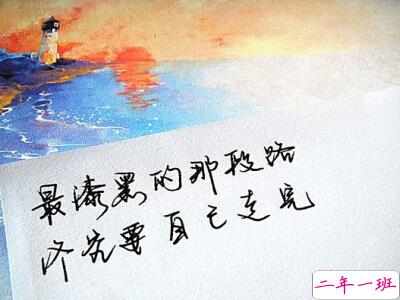 最漆黑的那段路
终究要自己走完
二年一班